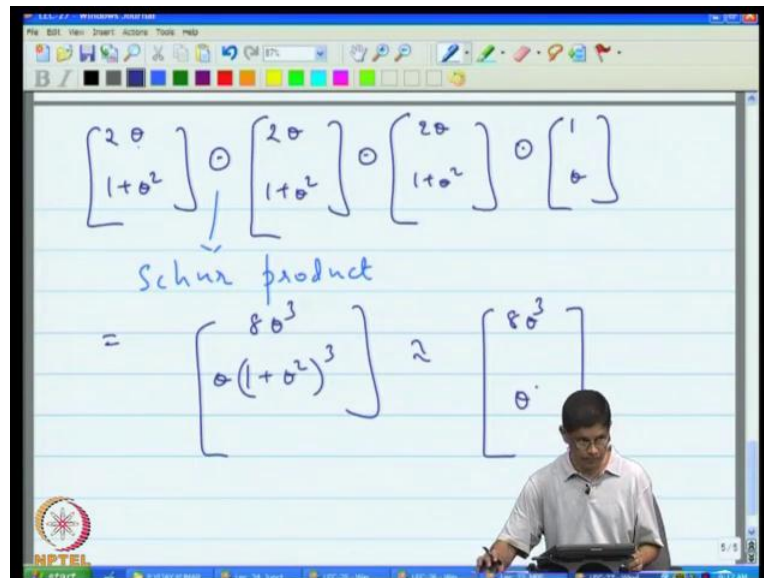 LEC-27 - Windows Journal
File Edit View Insert Actions Tools Help
87%
B I
[2θ 1+θ²] ⊙ [2θ 1+θ²] ⊙ [2θ 1+θ²] ⊙ [1 θ]
Schur product
= [8θ³ θ(1+θ²)³] ≈ [8θ³ θ]
5/5
NPTEL
start